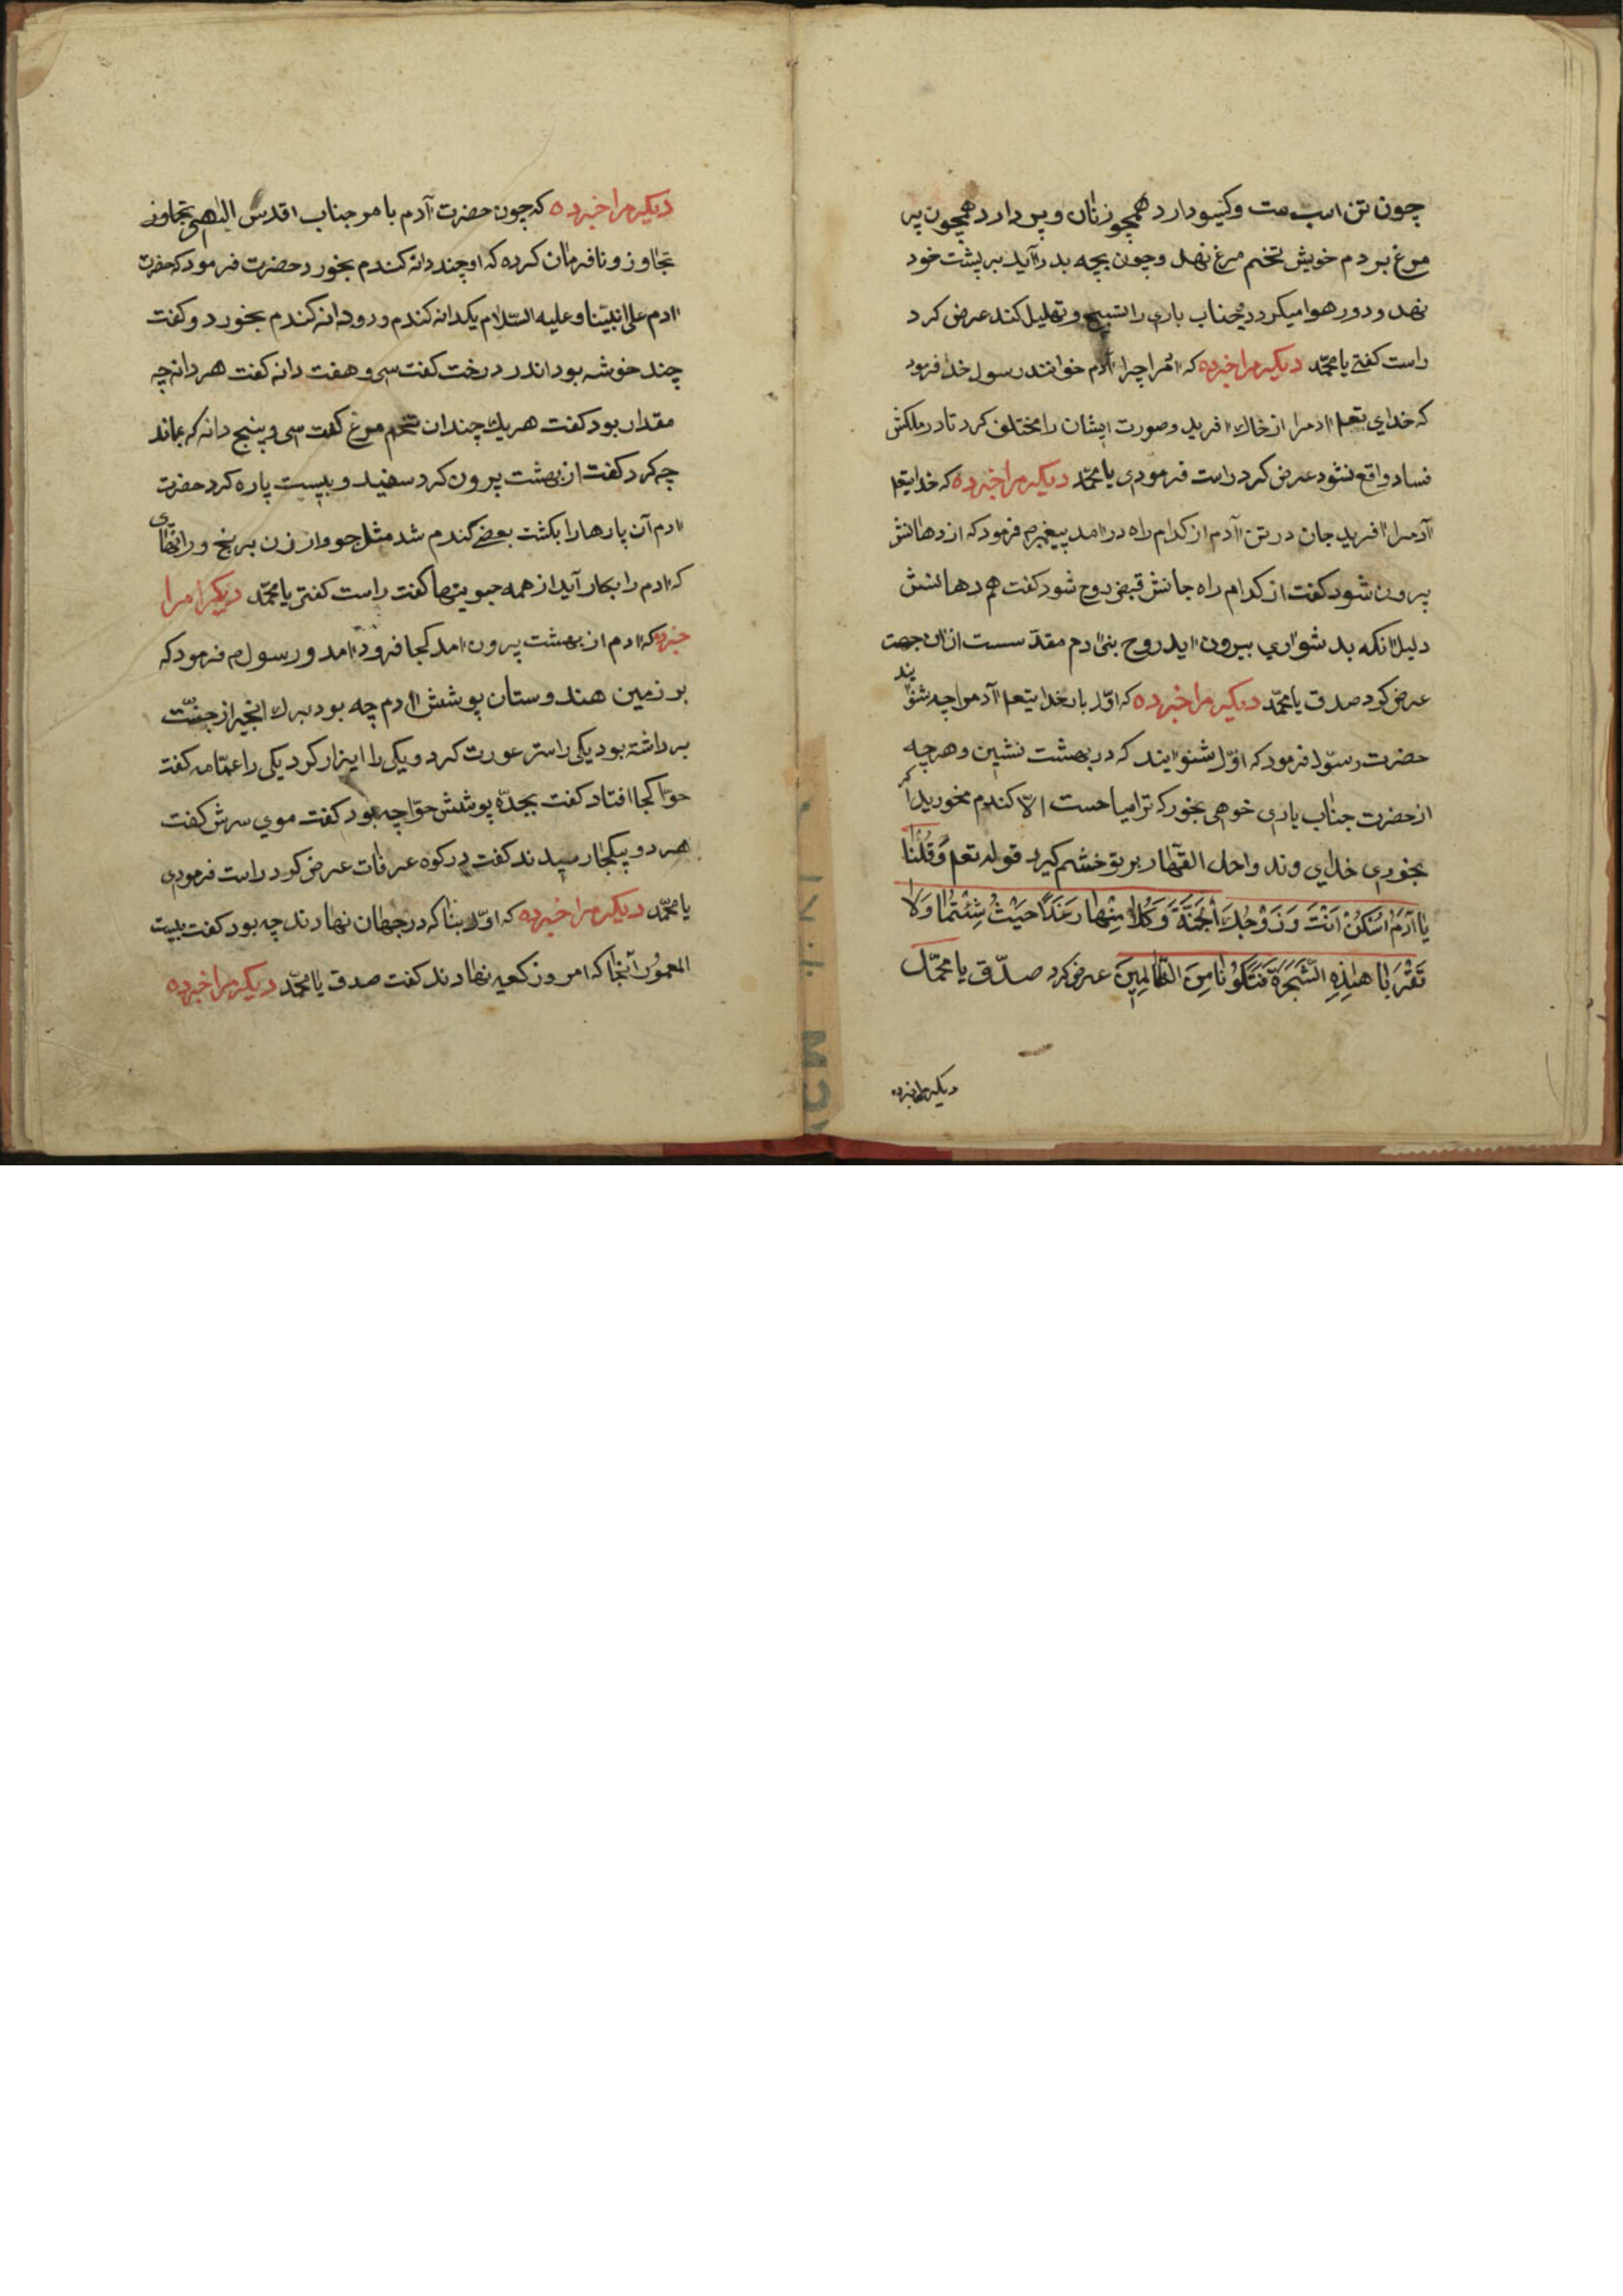 چون تن اسب ست وکیسو دارد همچو زنان و پر دارد همچون پر
مرغ بر دم خویش تخم مرغ نهد و چون بچه بدر آید بر پشت خود
نهد و در هوا میکردد جناب باری را تسبیح و تهلیل کند عرض کرد
راست کفتی یا محمّد دیکر مرا خبر ده که آدم را چرا آدم خوانند رسول خدا فرمود
که خدای تعم ادم را از خاک افرید و صورت ایشان را مختلف کرد تا در ملکش
فساد واقع نشود عرض کرد راست فرمودی یا محمّد دیکر مرا خبر ده که خدایتعم
آدم را افرید جان در تن آدم از کدام راه در امد پیغمبرم فرمود که از دهانش
بیرون شود کفت از کدام راه جانش قبض روح شود کفت هم دهانش
دلیل انکه بد شواری بیرون اید روح بنی ادم مقدّ سست ازان جهت
عرض کرد صدق یا محمّد دیکر مرا خبر ده که اوّل بار خدایتعم آدم را چه شنوایند
حضرت رسول فرمود که اوّل شنوایند که در بهشت نشین و هر چه
از حضرت جناب باری خوهی بخور که ترا مباحست الّا کندم مخورید اکر
بخوری خدای وند واحد القهّار بر تو خشم کیرد قوله تعم وَقُلْنَا
یَا آدَمُ اسْکُنْ اَنْتَ وَ زَوْجُکَ الجَنَّةَ وَکُلَا مِنْها رَغَدًا حَیْثُ شِئْتُمَا وَلَا
تَقْرَبَا هٰذِهِ الشَّجَرَةَ فَتَکُونَا مِنَ الظَّالِمِینَ عرض کرد صدّق یا محمّد
دیکر مرا خبر ده
دیکر مرا خبر ده که چون حضرت آدم با مر جناب اقدس الٰهی تجاوز
تجاوز و نافرمان کرده که او چند دانه کندم بخورد حضرت فرمود که حضرت
ادم علی نبیّنا و علیه السّلام یکدانه کندم و رو دانه کندم بخورد و کفت
چند خوشه بود اندر درخت کفت سی و هفت دانه کفت هر دانه چه
مقدار بود کفت هر یک چندان تخم مرغ کفت سی و پنج دانه که بماند
چه کرد کفت از بهشت بیرون کرد سفید و بیست پاره کرد حضرت
ادم آن پارها را بکشت بعضی کندم شد مثل جو و ارزن برنج و رانهای
که ادم را بکار آید از همه حبو بتها کفت راست کفتی یا محمّد دیکر مرا
خبر ده که ادم از بهشت بیرون امد کجا فرود امد و رسول م فرمود که
بر زمین هندوستان پوشش ادم چه بود برک انجیر از جنّت
برداشته بود یکی را ستر عورت کرد و یکی را ایزار کرد یکی را عمّامه کفت
حوّا کجا افتاد کفت بجدّه پوشش حوّا چه بود کفت موی سرش کفت
هر دو بیکجا رسیدند کفت در کوه عرفات عرض کرد راست فرمودی
یا محمّد دیکر مرا خبر ده که اوّل بنا که در جهان نهادند چه بود کفت بیت
المعمور آنجا که امروز کعبه نهادند کفت صدق یا محمّد دیکر مرا خبر ده